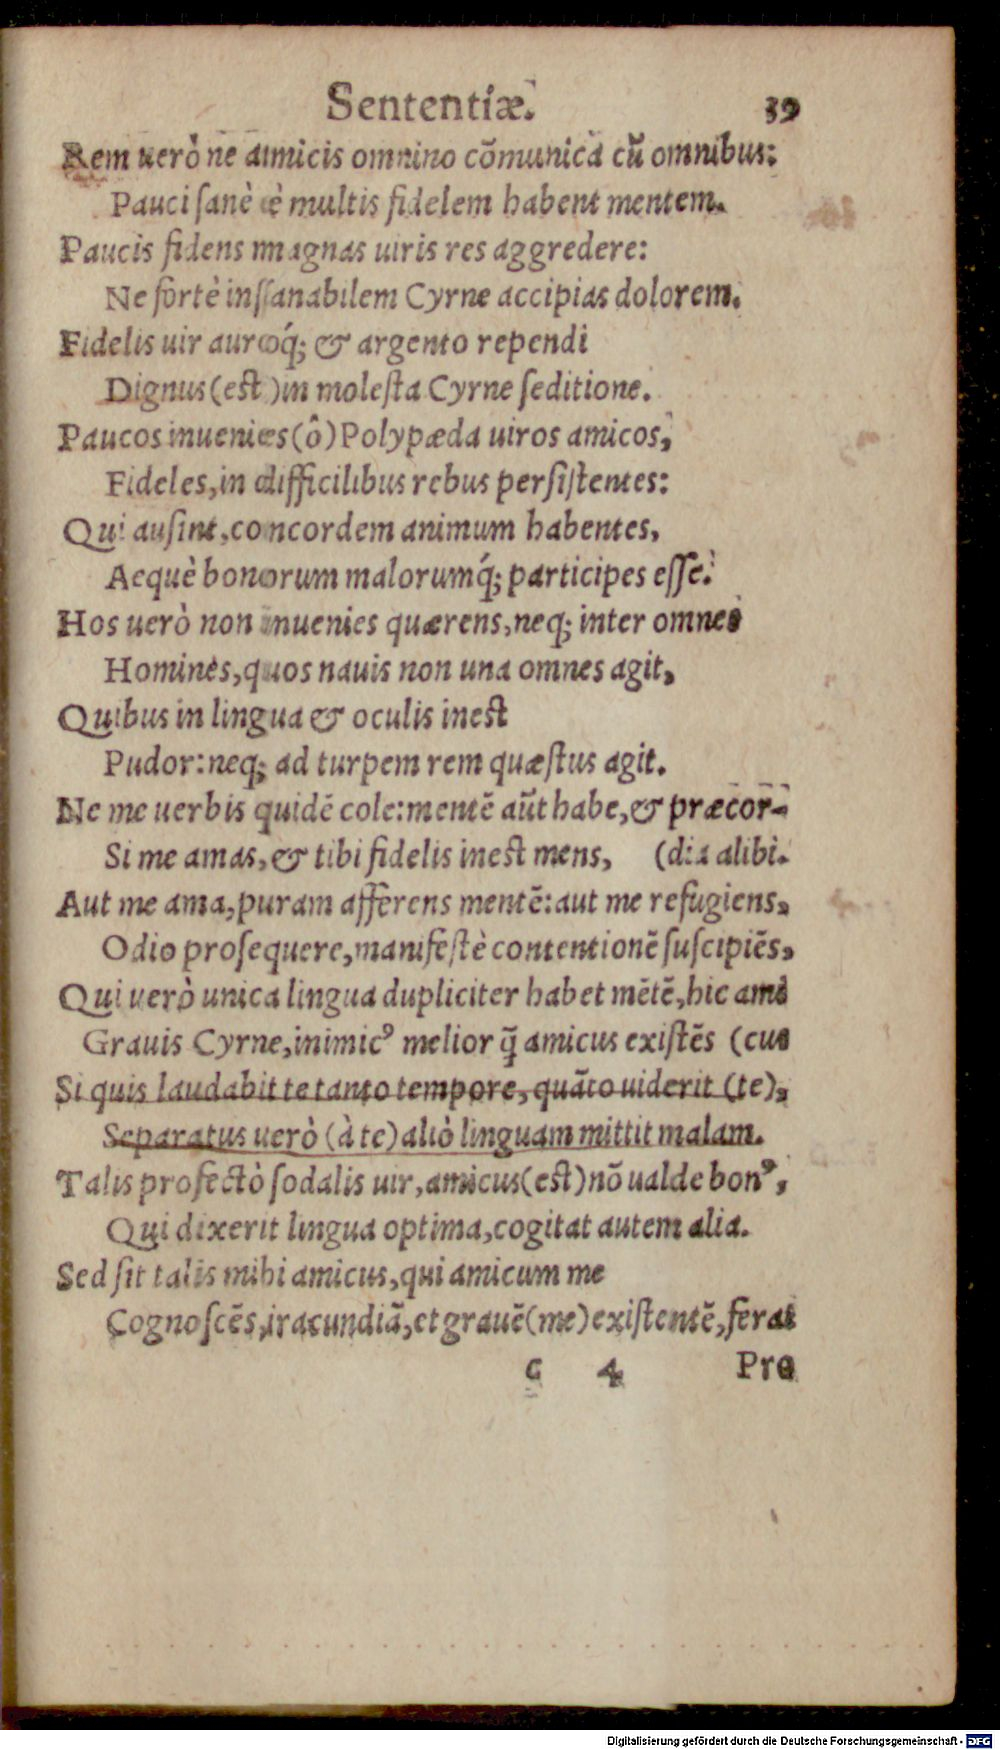 Sententiæ. 39
Rem uerò ne amicis omnino cōmunica cū omnibus:
Pauci sanè è multis fidelem habent mentem.
Paucis fidens magnas uiris res aggredere:
Ne fortè insanabilem Cyrne accipias dolorem.
Fidelis uir auroq́; & argento rependi
Dignus (est) in molesta Cyrne seditione.
Paucos inuenies (ô) Polypæda uiros amicos,
Fideles, in difficilibus rebus persistentes:
Qui ausint, concordem animum habentes,
Aequè bonorum malorumq́; participes esse.
Hos uerò non inuenies quærens, neq; inter omnes
Homines, quos nauis non una omnes agit,
Quibus in lingua & oculis inest
Pudor: neq; ad turpem rem quæstus agit.
Ne me uerbis quidē cole: mentē aūt habe, & præcor-
Si me amas, & tibi fidelis inest mens, (dia alibi.
Aut me ama, puram afferens mentē: aut me refugiens,
Odio prosequere, manifestè contentionē suscipiēs,
Qui uerò unica lingua dupliciter habet mētē, hic ami
Grauis Cyrne, inimicꝰ melior q̄ amicus existēs (cus
Si quis laudabit te tanto tempore, quāto uiderit (te),
Separatus uerò (à te) aliò linguam mittit malam.
Talis profectò sodalis uir, amicus (est) nō ualde bonꝰ,
Qui dixerit lingua optima, cogitat autem alia.
Sed sit talis mihi amicus, qui amicum me
Cognoscēs, iracundiā, et grauē (me) existentē, ferat
c 4 Pro
Digitalisierung gefördert durch die Deutsche Forschungsgemeinschaft - DFG